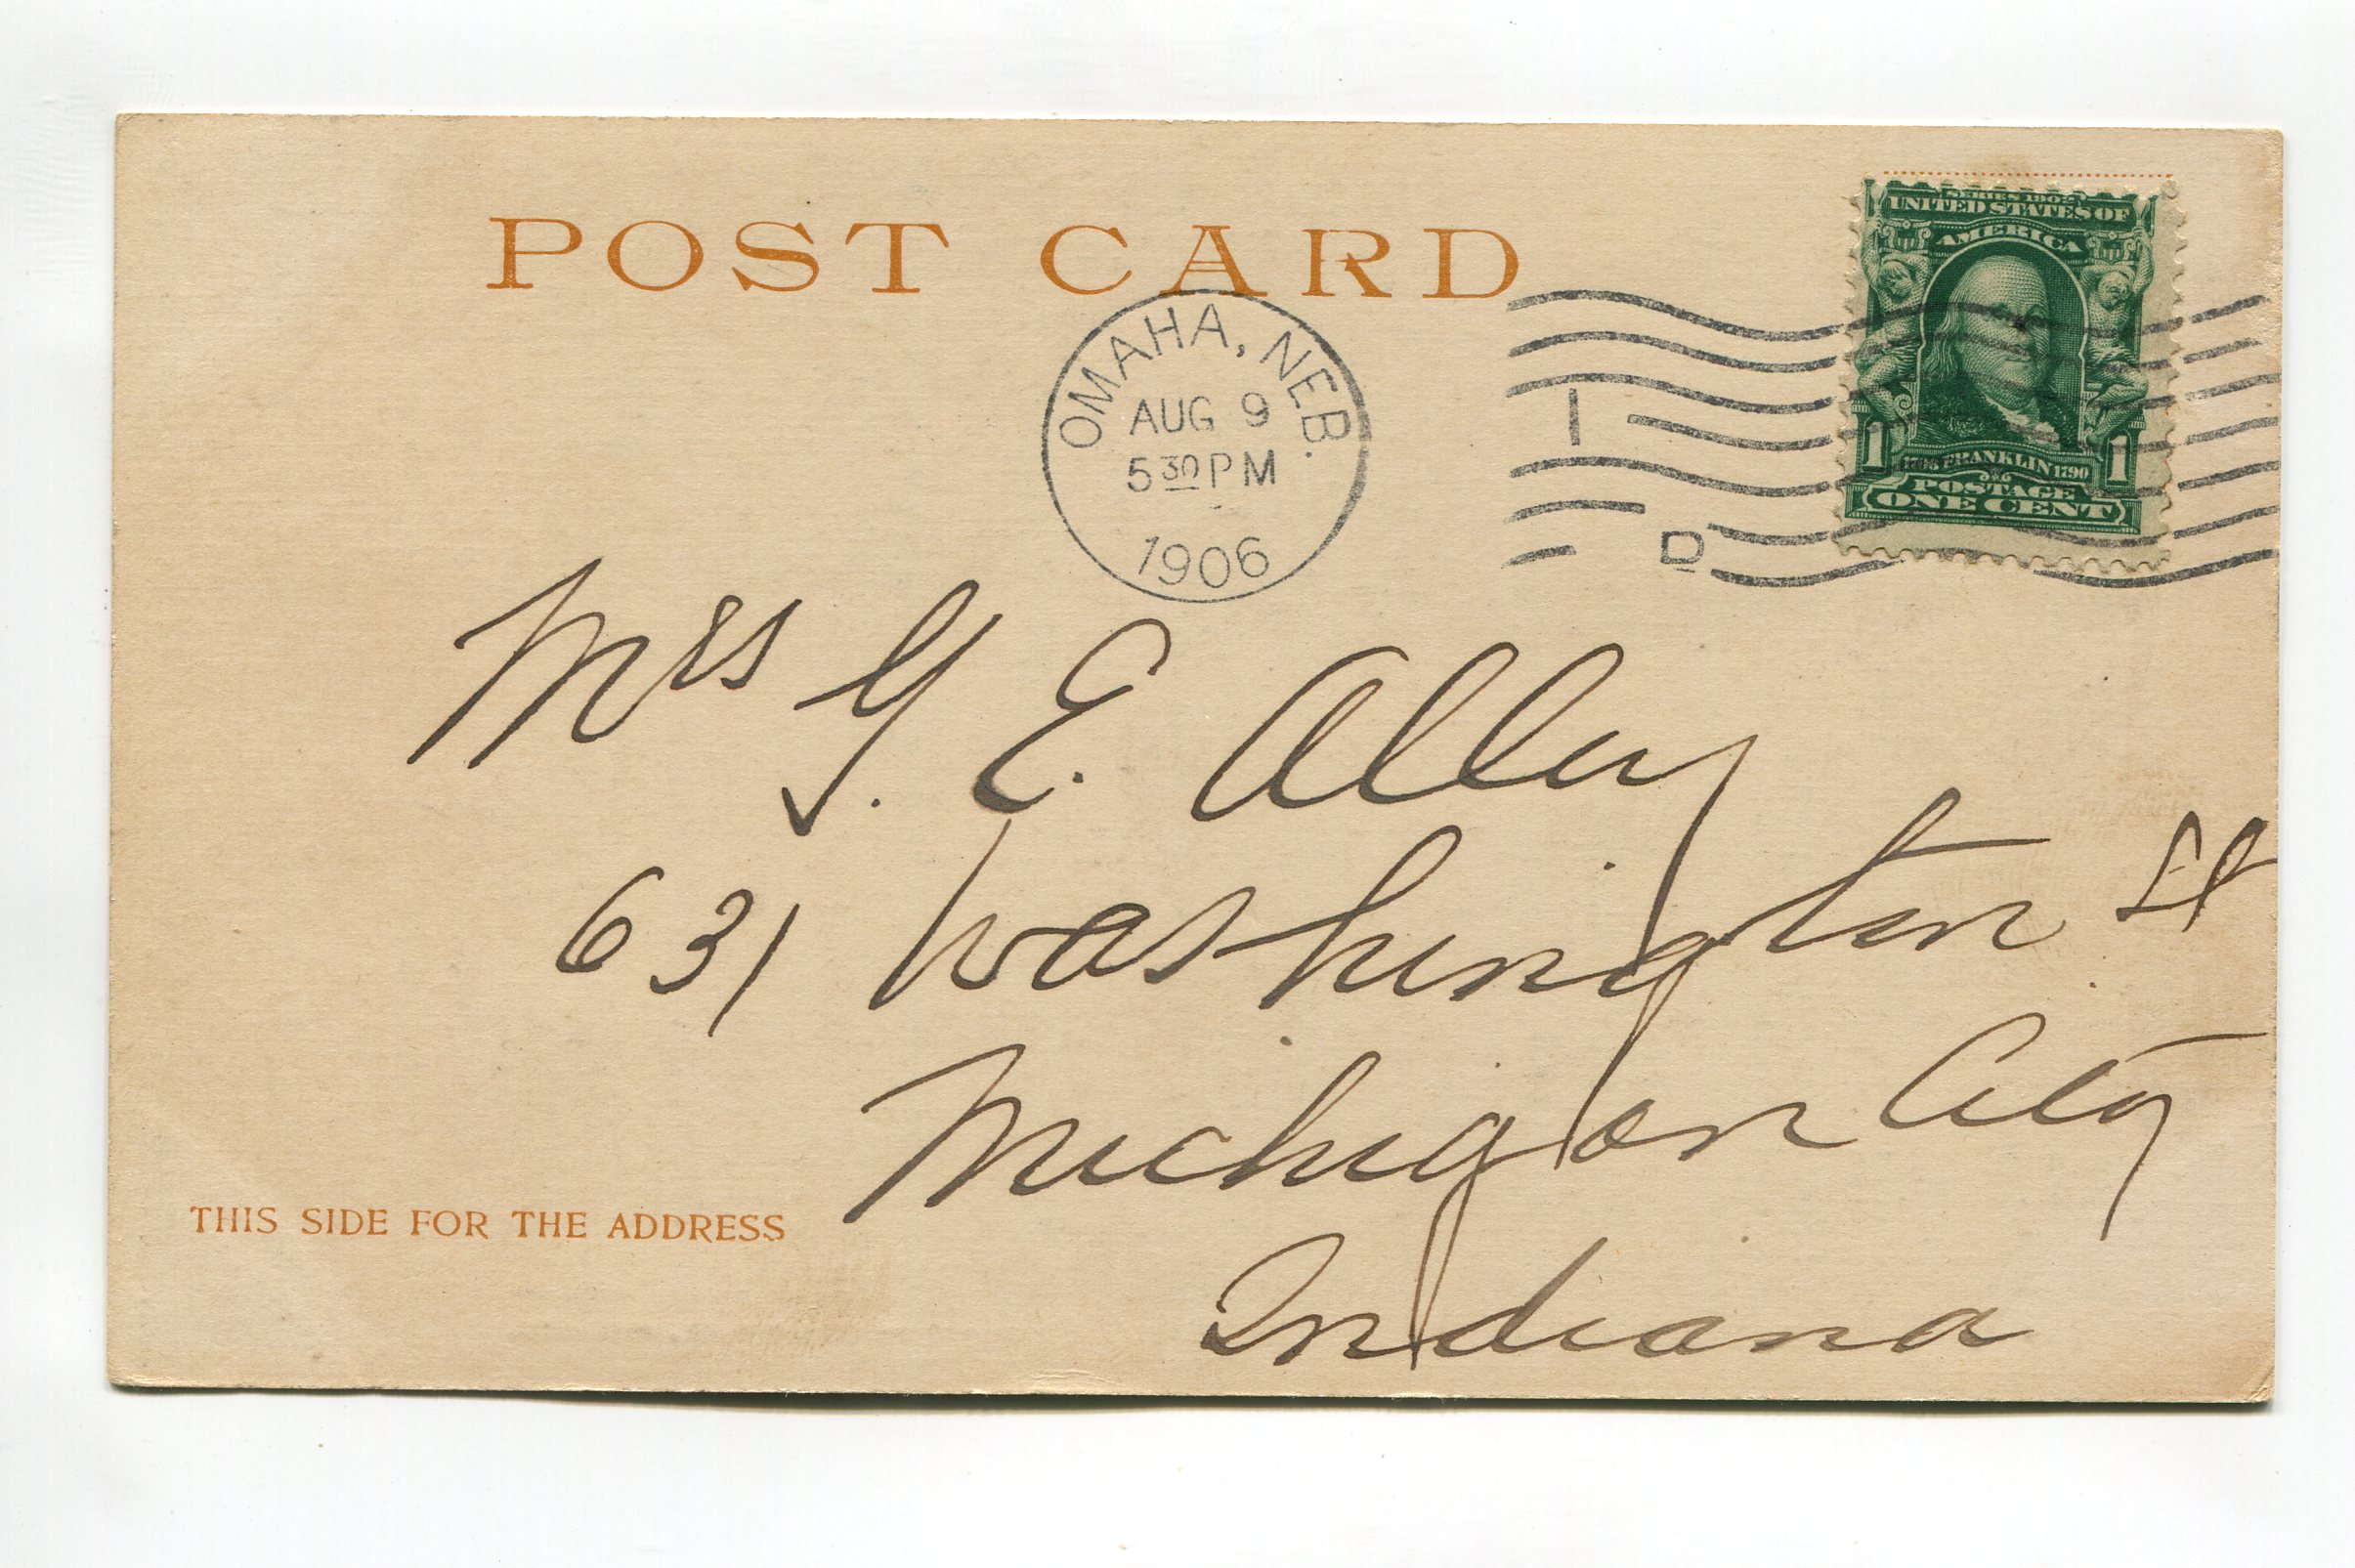 POST CARD
SERIES 1902
UNITED STATES OF
AMERICA
1 1706 FRANKLIN 1790 1
POSTAGE
ONE CENT
OMAHA, NEB.
AUG 9
5 30 PM
1906
1
D
Mrs Y. E. Alley
631 Washington St
Michigan City
Indiana
THIS SIDE FOR THE ADDRESS